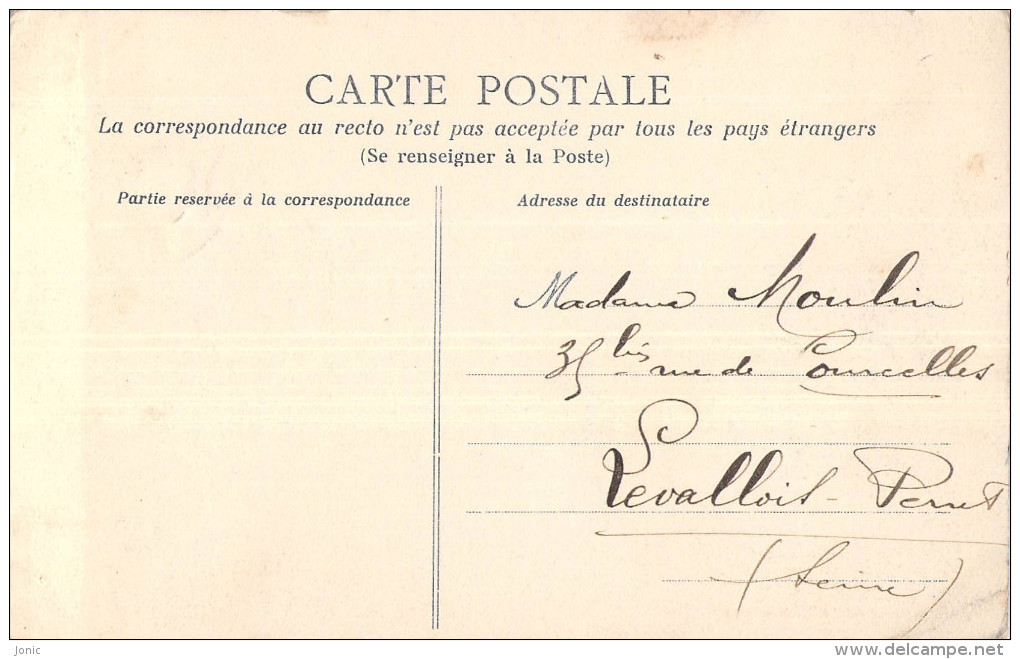 CARTE POSTALE
La correspondance au recto n'est pas acceptée par tous les pays étrangers
(Se renseigner à la Poste)
Partie reservée à la correspondance
Adresse du destinataire
Madame Moulin
35 bis rue de Courcelles
Levallois-Perret
(Seine)
Jonic
delcampe.net